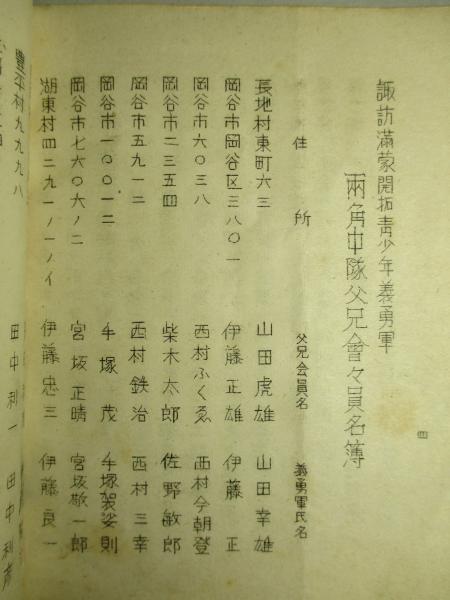 諏訪滿蒙開拓青少年義勇軍
兩角中隊父兄會々員名簿
四
住所 父兄会員名 義勇軍氏名
長地村東町六三 山田虎雄 山田幸雄
岡谷市岡谷区三八〇一 伊藤正雄 伊藤正
岡谷市六〇三八 西村ふくゑ 西村今朝登
岡谷市二三五四 柴木太郎 佐野敏郎
岡谷市五九一二 西村鉄治 西村三幸
岡谷市一〇〇一二 手塚茂 手塚袈裟則
岡谷市七六〇六ノ二 宮坂正晴 宮坂敬一郎
湖東村四二九一ノ一ノイ 伊藤忠三 伊藤良一
豊平村九九九八 田中利一 田中利